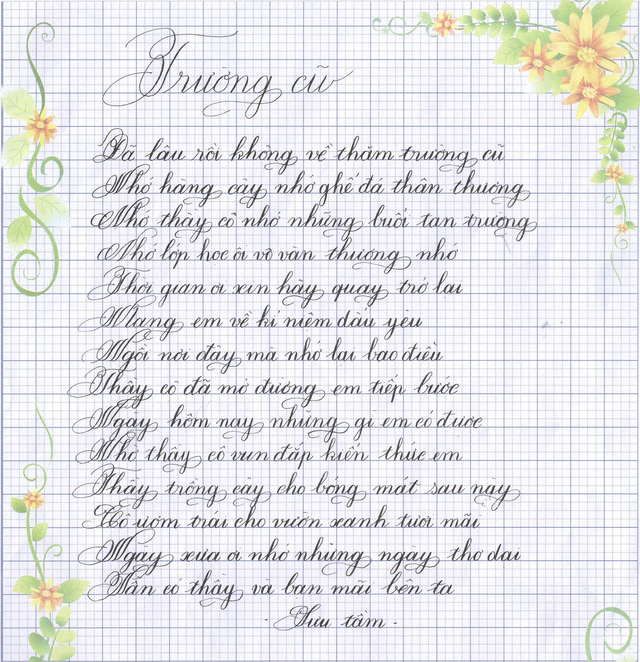 Trường cũ
Đã lâu rồi không về thăm trường cũ
Nhớ hàng cây nhớ ghế đá thân thương
Nhớ thầy cô nhớ những buổi tan trường
Nhớ lớp học ôi vô vàn thương nhớ
Thời gian ơi xin hãy quay trở lại
Mang em về kỉ niệm dấu yêu
Ngồi nơi đây mà nhớ lại bao điều
Thầy cô đã mở đường em tiếp bước
Ngày hôm nay những gì em có được
Nhờ thầy cô vun đắp kiến thức em
Thầy trồng cây cho bóng mát sau này
Cô ươm trái cho vườn xanh tươi mãi
Ngày xưa ơi nhớ những ngày thơ dại
Vẫn có thầy và bạn mãi bên ta
- Sưu tầm -